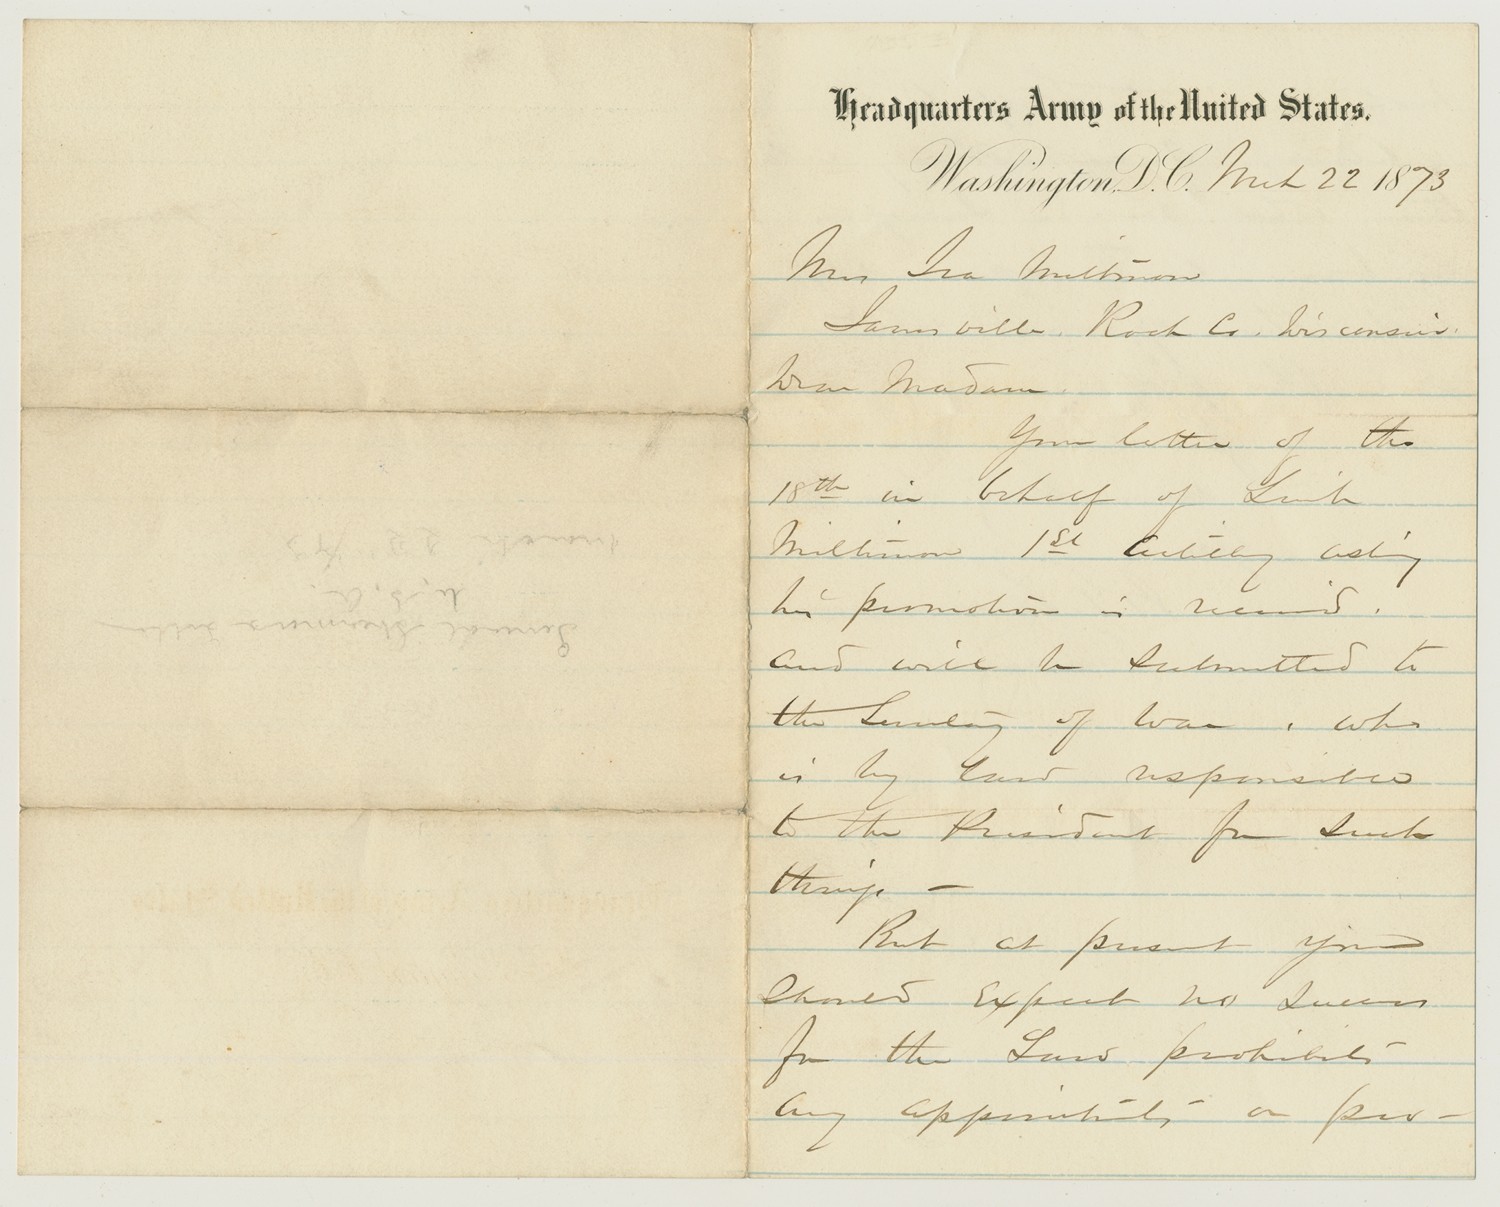 Headquarters Army of the United States.
Washington, D.C. Mch 22 1873
Mrs Ira Miltimore
Janesville. Rock Co. Wisconsin.
Dear Madam.
Your letter of the
18th in behalf of Lieut
Miltimore 1st Artillery asking
his promotion is received.
and will be submitted to
the Secretary of War, who
is by Law responsible
to the President for such
things —
But at present you
should expect no success
for the Law prohibits
any appointments or pro-
General Sherman's letter
U.S.A.
March 22 /73